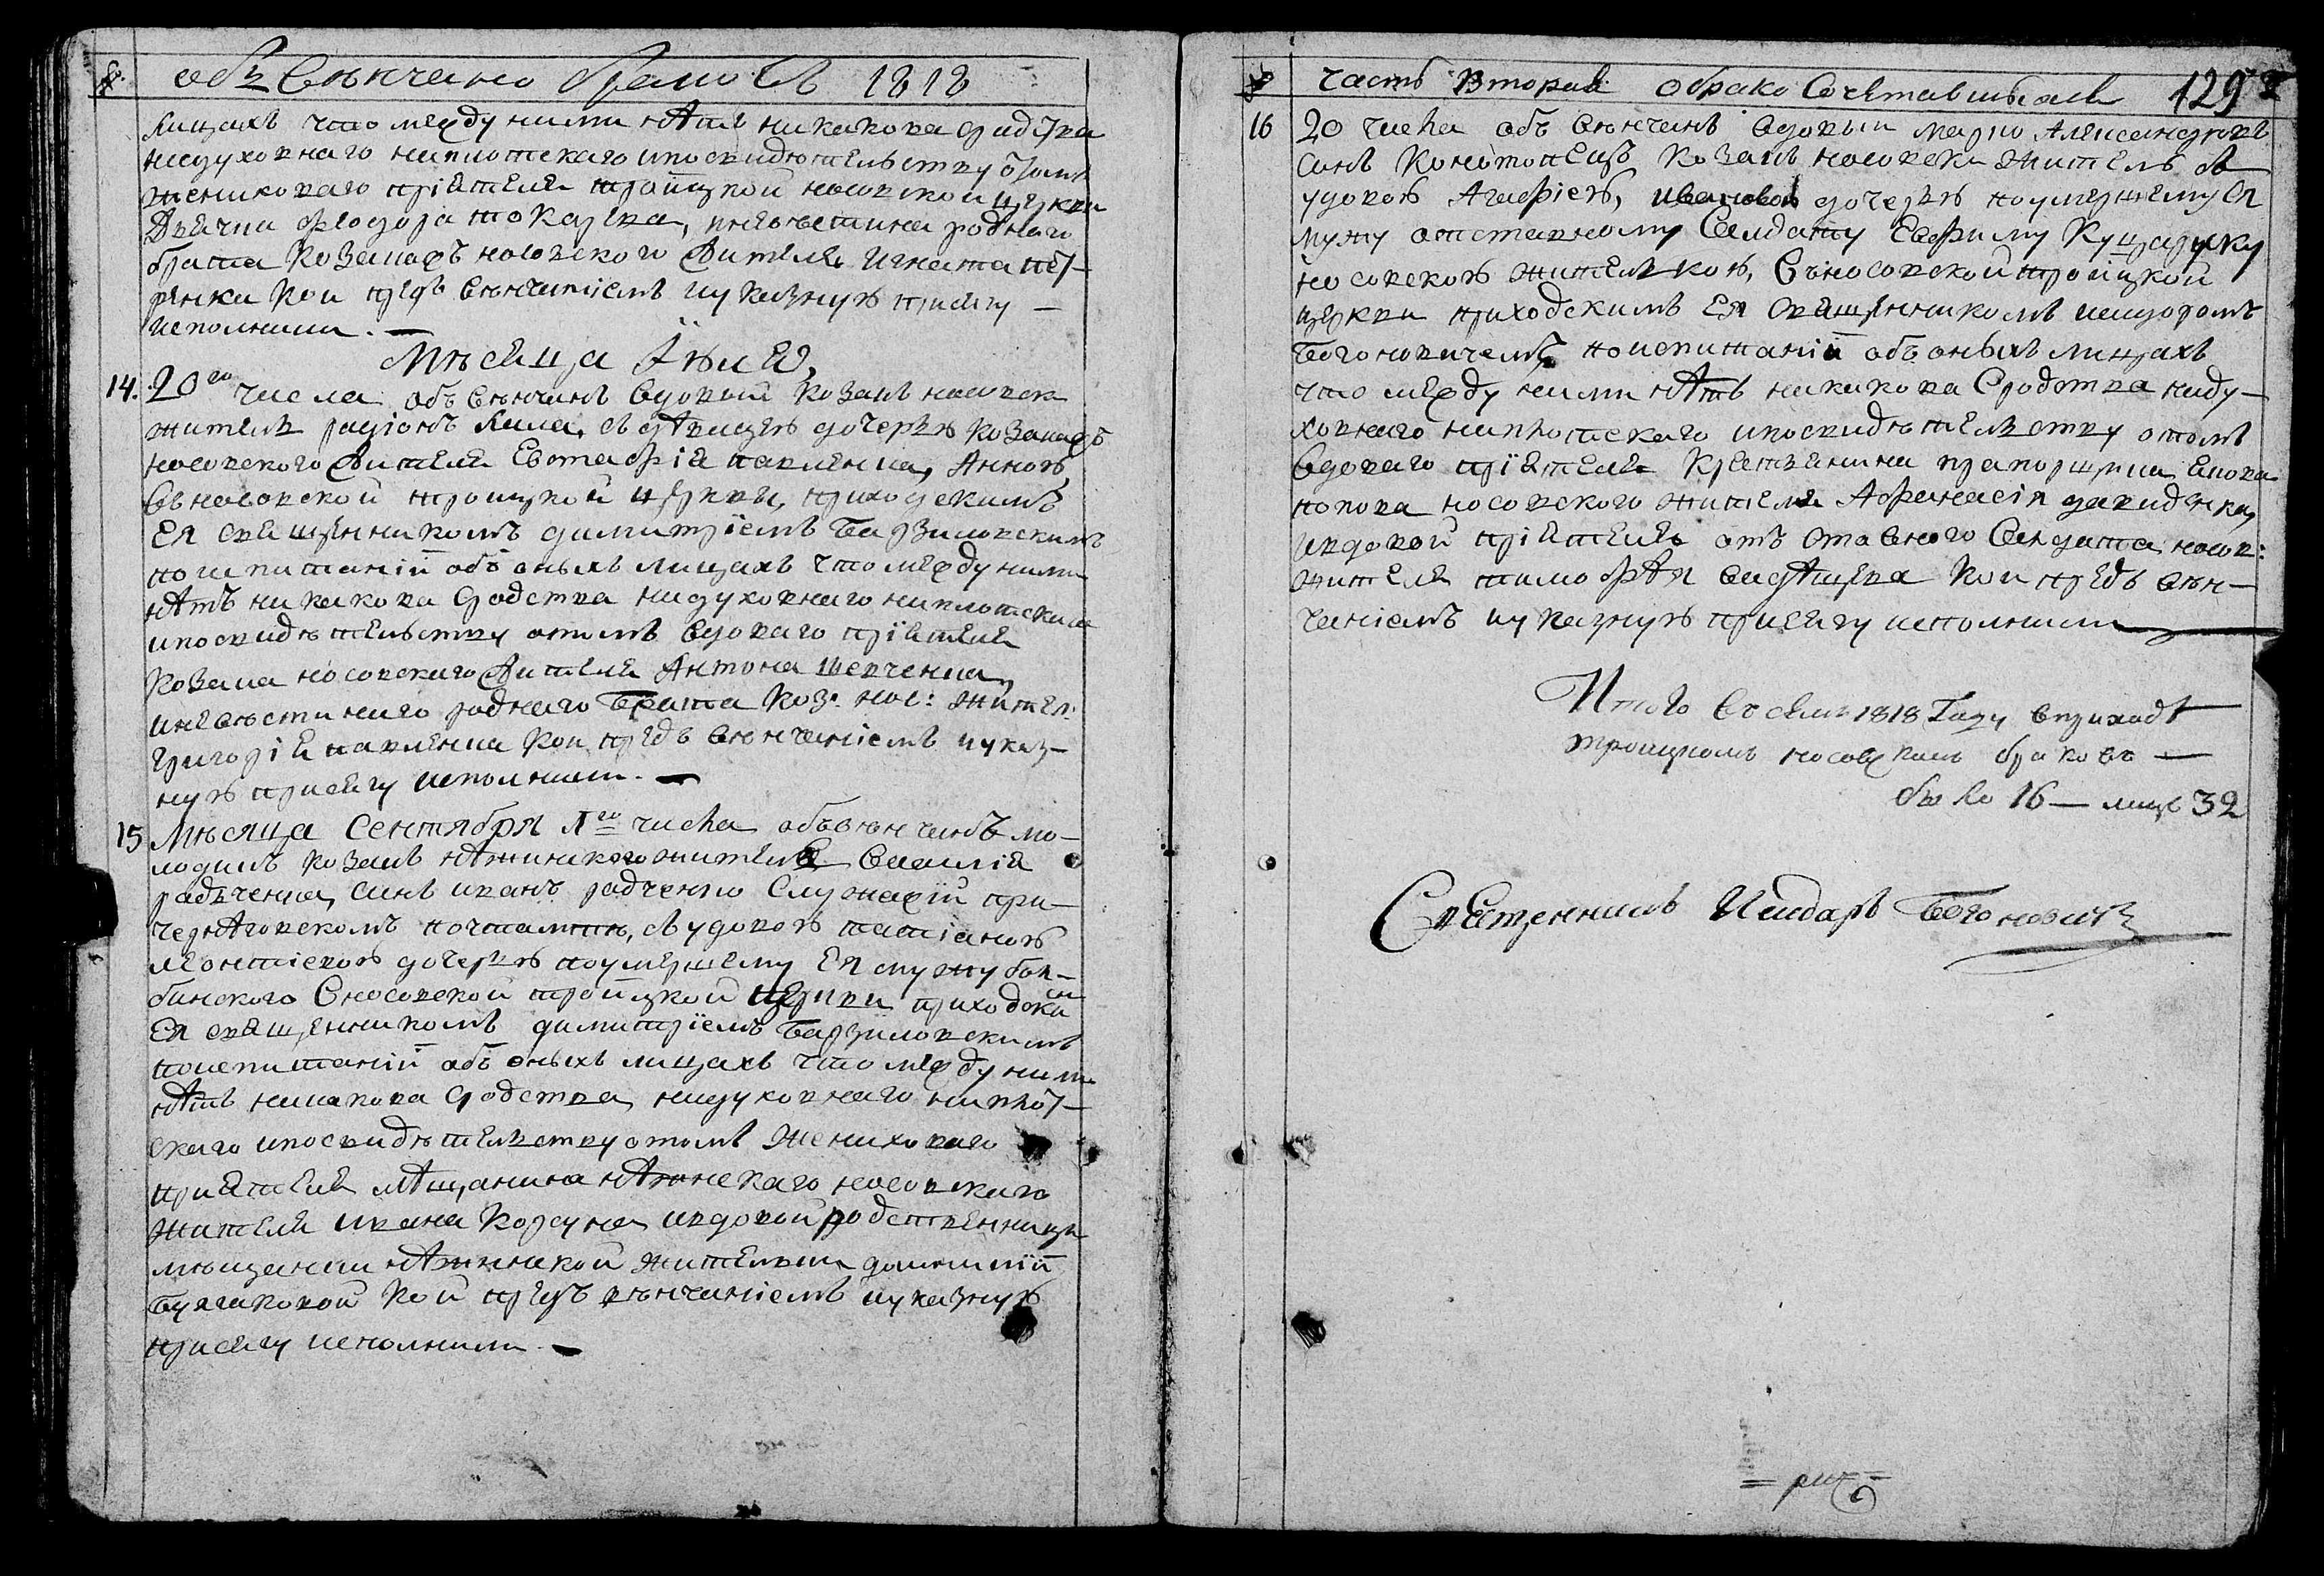 № обвѣнчано браковъ 1818
лицахъ что между ними нѣтъ никакова сродства
нидуховнаго ниплотскаго ипосвидѣтельству отомъ
жениховаго пріятеля тройцкой носовской церкви
Дьячка феодора токарева, иневѣстина роднаго
брата козачаго носовского жителя игната пет-
ренка кои предъ вѣнчаніемъ иуказную присягу —
исполнили. —
Мѣсяца Іюля,
14. 20го числа обвѣнчанъ вдовый козакъ носовск
житель родіонъ Кила, съ дѣвицею дочерью козачаго
носовского жителя Евстафія павленка, Анною,
въносовской троицкой церкви, приходскимъ
Ея священникомъ димитріемъ Барзиловскимъ
поиспитаніи объ оныхъ лицахъ что между ними
нѣтъ никакова сродства нидуховнаго ниплотскаго
ипосвидѣтельству отомъ вдоваго пріятеля
козака носовскаго жителя Антона шевченка,
иневѣстинаго роднаго брата коз. нос: жител.
григорія павленка кои предъ вѣнчаніемъ иуказ-
ную присягу исполнили. —
15 Мѣсяца Сентября 1го числа обвѣнчанъ мо-
лодимъ козакъ нѣжинского жителя василія
радченка, синъ иванъ радченко служащій при
чернѣговскомъ почтамтѣ, съ удовою татіаною
леонтіевою дочерью поумершему Ея мужу
бинского вносовской тройцкой церкви приходским
Ея священникомъ димитріемъ Барзиловскимъ
поиспитаніи объ оныхъ лицахъ что между ними
нѣтъ никакова сродства, нидуховнаго ниплот-
скаго ипосвидѣтельству отомъ жениховаго
пріятеля мѣщанина нѣжинскаго носовскаго
жителя ивана корсуна, ивдовой родственници
мѣщанки нѣжинской жителки
булгаковой кои предъ вѣнчаніемъ иуказную
присягу исполнили. —
№ часть вторая обрако сочетавшихся 129
16 20 числа объ вѣнчанъ вдовый марко Александровъ
синъ конотопецъ козакъ носовски житель съ
удовою Агафіею, ивановою дочерью поумершему Ея
мужу отставному салдату Евфиму
носовскою жителкою, въносовской тройцкой
церкви приходскимъ Ея священникомъ исидоромъ
Богоновичемъ поиспитаніи объ оныхъ лицахъ
что между ними нѣтъ никакова сродства ниду-
ховнаго ниплотскаго ипосвидѣтельству отомъ
вдоваго пріятеля крестьянина прапорщика
попова носовского жителя Афанасія давиденка,
ивдовой пріятеля отъ ставного салдата носов:
жителя тимофѣя кои предъ вѣн-
чаніемъ иуказную присягу исполнили —
Итого въ семъ 1818 Году вприходѣ
троицкомъ носовскомъ браковъ —
было 16 — лицъ 32
Священникъ Исидоръ Богоновичъ